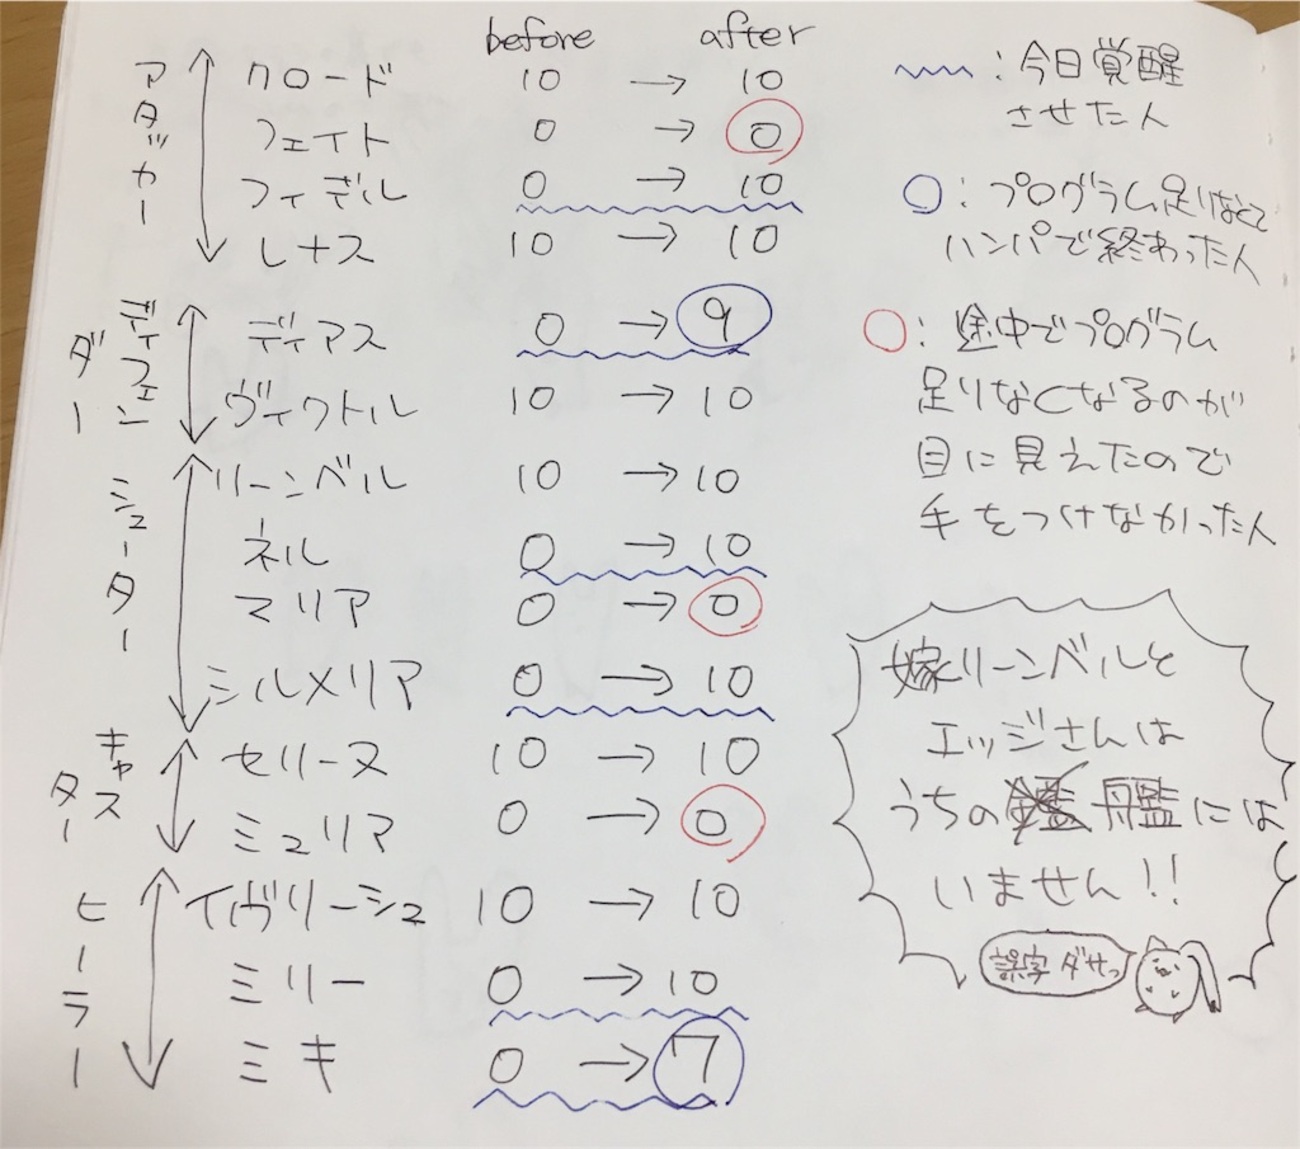 before after
アタッカー
クロード 10 → 10
フェイト 0 → 0
フィデル 0 → 10
レナス 10 → 10
ディフェンダー
ディアス 0 → 9
ヴィクトル 10 → 10
シューター
リーンベル 10 → 10
ネル 0 → 10
マリア 0 → 0
シルメリア 0 → 10
キャスター
セリーヌ 10 → 10
ミュリア 0 → 0
ヒーラー
イヴリーシュ 10 → 10
ミリー 0 → 10
ミキ 0 → 7
:今日覚醒
させた人
:プログラム足りなくて
ハンパで終わった人
:途中でプログラム
足りなくなるのが
目に見えたので
手をつけなかった人
嫁リーンベルと
エッジさんは
うちの艦には
いません!!
誤字ダサっ